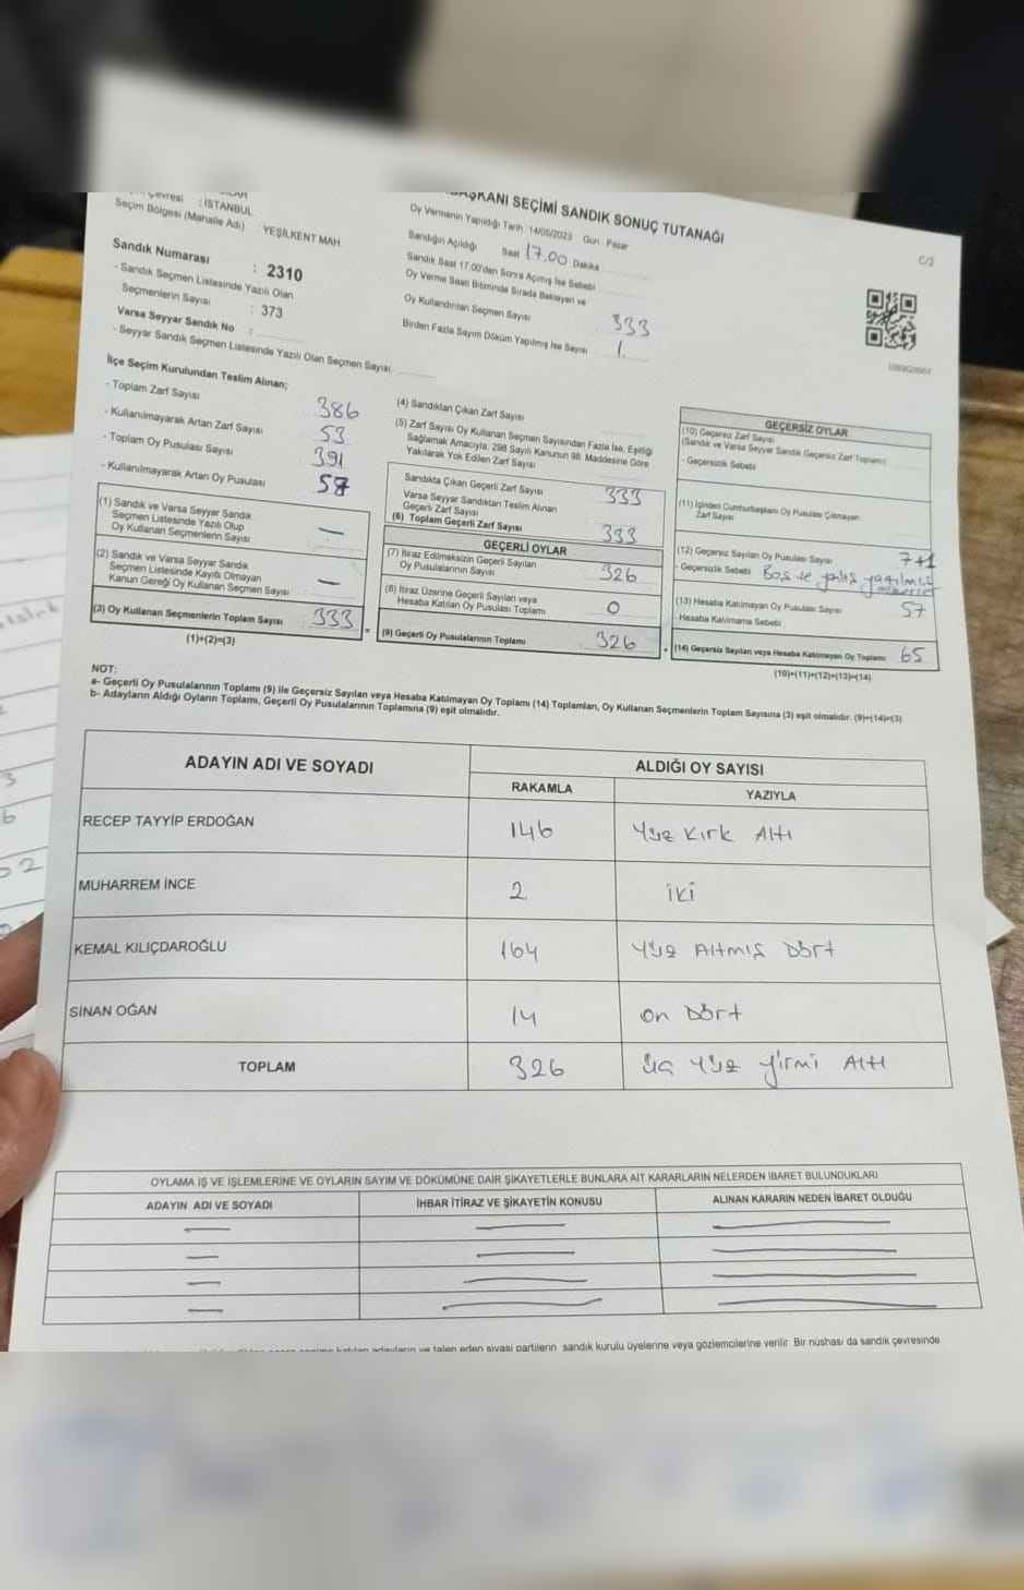 BAŞKANI SEÇİMİ SANDIK SONUÇ TUTANAĞI
: İSTANBUL
Seçim Bölgesi (Mahalle Adı) YEŞİLKENT MAH
Sandık Numarası : 2310
- Sandık Seçmen Listesinde Yazılı Olan
Seçmenlerin Sayısı : 373
Varsa Seyyar Sandık No :
- Seyyar Sandık Seçmen Listesinde Yazılı Olan Seçmen Sayısı
Oy Vermenin Yapıldığı Tarih: 14/05/2023 Gün: Pazar
Sandığın Açıldığı Saat 17.00 Dakika
Sandık Saat 17.00'den Sonra Açılmış İse Sebebi
Oy Verme Saati Bitiminde Sırada Bekleyen ve
Oy Kullandırılan Seçmen Sayısı 333
Birden Fazla Sayım Döküm Yapılmış İse Sayısı 1.
C/2
İlçe Seçim Kurulundan Teslim Alınan;
- Toplam Zarf Sayısı 386
- Kullanılmayarak Artan Zarf Sayısı 53
- Toplam Oy Pusulası Sayısı 391
- Kullanılmayarak Artan Oy Pusulası 58
(1) Sandık ve Varsa Seyyar Sandık
Seçmen Listesinde Yazılı Olup
Oy Kullanan Seçmenlerin Sayısı —
(2) Sandık ve Varsa Seyyar Sandık
Seçmen Listesinde Kayıtlı Olmayan
Kanun Gereği Oy Kullanan Seçmen Sayısı —
(3) Oy Kullanan Seçmenlerin Toplam Sayısı 333
(1)+(2)=(3)
(4) Sandıktan Çıkan Zarf Sayısı
(5) Zarf Sayısı Oy Kullanan Seçmen Sayısından Fazla İse, Eşitliği
Sağlamak Amacıyla, 298 Sayılı Kanunun 98. Maddesine Göre
Yakılarak Yok Edilen Zarf Sayısı
Sandıkta Çıkan Geçerli Zarf Sayısı 333
Varsa Seyyar Sandıktan Teslim Alınan
Geçerli Zarf Sayısı
(6) Toplam Geçerli Zarf Sayısı 333
GEÇERLİ OYLAR
(7) İtiraz Edilmeksizin Geçerli Sayılan
Oy Pusulalarının Sayısı 326
(8) İtiraz Üzerine Geçerli Sayılan veya
Hesaba Katılan Oy Pusulası Toplamı 0
(9) Geçerli Oy Pusulalarının Toplamı 326
GEÇERSİZ OYLAR
(10) Geçersiz Zarf Sayısı
(Sandık ve Varsa Seyyar Sandık Geçersiz Zarf Toplamı)
- Geçersizlik Sebebi
(11) İçinden Cumhurbaşkanı Oy Pusulası Çıkmayan
Zarf Sayısı
(12) Geçersiz Sayılan Oy Pusulası Sayısı 7+1
- Geçersizlik Sebebi Boş ve
(13) Hesaba Katılmayan Oy Pusulası Sayısı 57
- Hesaba Katılmama Sebebi
(14) Geçersiz Sayılan veya Hesaba Katılmayan Oy Toplamı 65
(10)+(11)+(12)+(13)=(14)
NOT:
a- Geçerli Oy Pusulalarının Toplamı (9) ile Geçersiz Sayılan veya Hesaba Katılmayan Oy Toplamı (14) Toplamları, Oy Kullanan Seçmenlerin Toplam Sayısına (3) eşit olmalıdır. (9)+(14)=(3)
b- Adayların Aldığı Oyların Toplamı, Geçerli Oy Pusulalarının Toplamına (9) eşit olmalıdır.
ADAYIN ADI VE SOYADI ALDIĞI OY SAYISI
RAKAMLA YAZIYLA
RECEP TAYYİP ERDOĞAN 146 Yüz Kırk Altı
MUHARREM İNCE 2 iki
KEMAL KILIÇDAROĞLU 164 Yüz Altmış Dört
SİNAN OĞAN 14 on Dört
TOPLAM 326 üç yüz yirmi Altı
OYLAMA İŞ VE İŞLEMLERİNE VE OYLARIN SAYIM VE DÖKÜMÜNE DAİR ŞİKAYETLERLE BUNLARA AİT KARARLARIN NELERDEN İBARET BULUNDUKLARI
ADAYIN ADI VE SOYADI İHBAR İTİRAZ VE ŞİKAYETİN KONUSU ALINAN KARARIN NEDEN İBARET OLDUĞU
siyasi partilerin sandık kurulu üyelerine veya gözlemcilerine verilir. Bir nüshası da sandık çevresinde